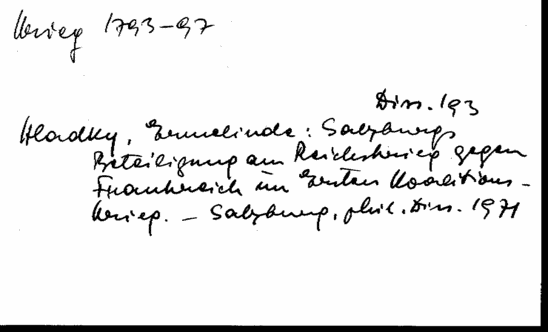 Krieg 1793-97
Diss. 193
Hladky, Ermelinde: Salzburgs
Beteiligung am Reichskrieg gegen
Frankreich im Ersten Koalitions-
krieg. - Salzburg, phil. Diss. 1971